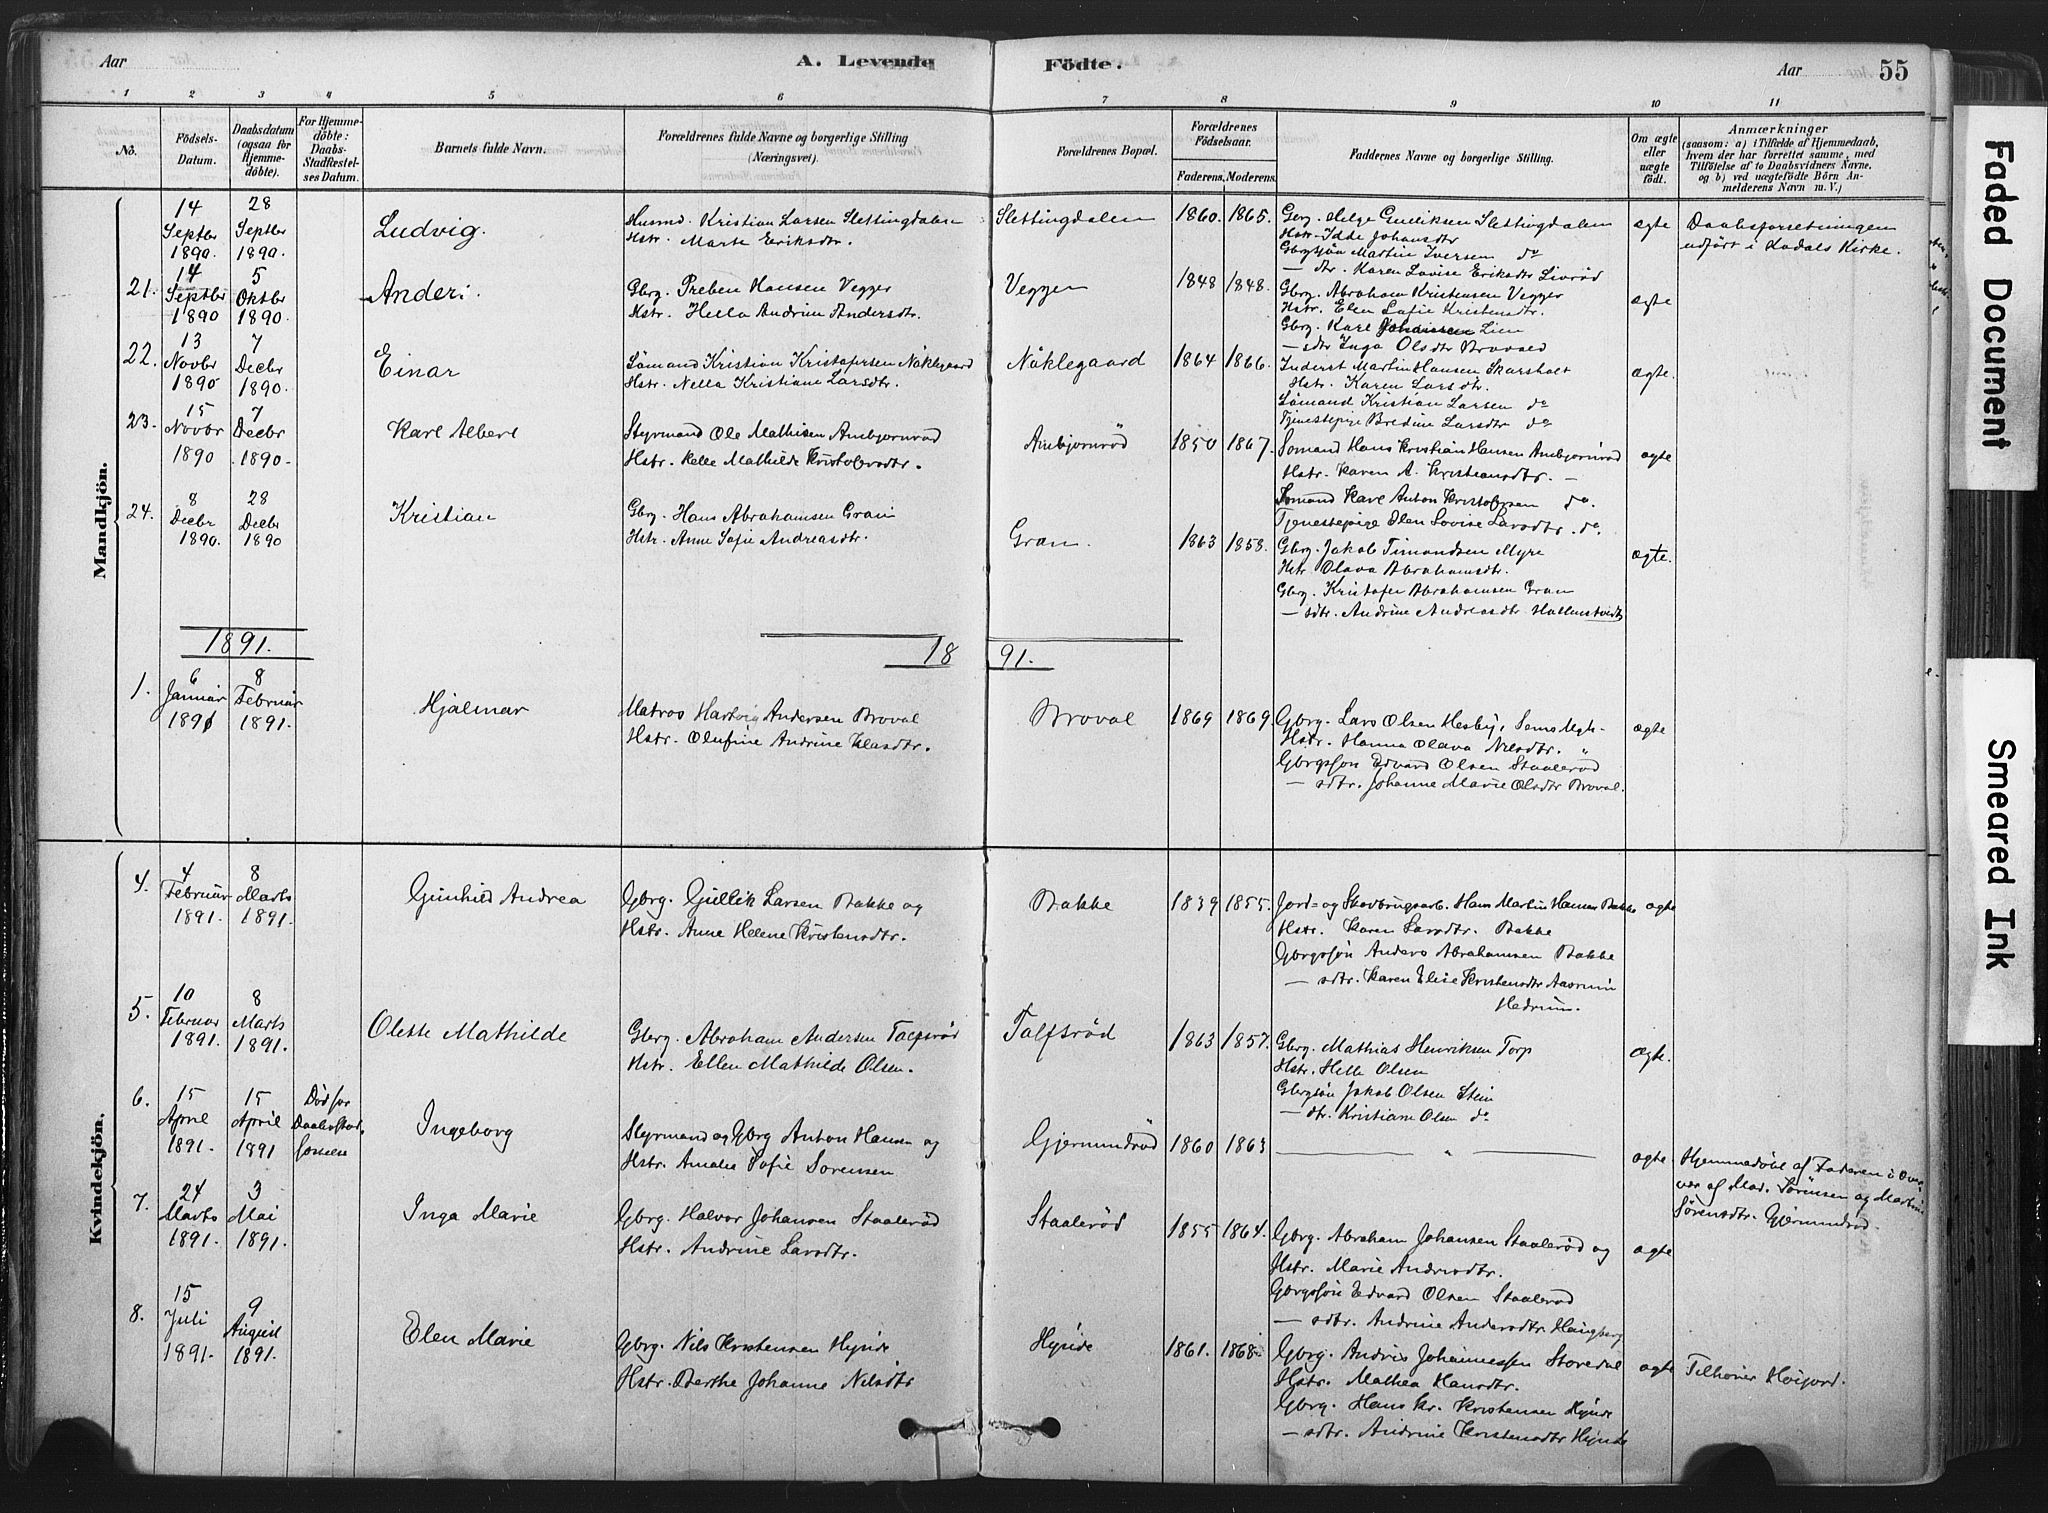 Aar
A. Levende Födte.
Aar
55
1 2 3 4 5 6 7 8 9 10 11
No.
Födsels-
Datum.
Daabsdatum
(ogsaa for
Hjemme-
döbte).
For Hjemme-
döbte:
Daabs-
Stadfæstel-
ses Datum.
Barnets fulde Navn.
Forældrenes fulde Navne og borgerlige Stilling
(Næringsvei).
Forældrenes Bopæl.
Forældrenes
Födselsaar.
Faderens. Moderens.
Faddernes Navne og borgerlige Stilling.
Om ægte
eller
uægte
födt.
Anmærkninger
(saasom: a) i Tilfælde af Hjemmedaab,
hvem der har forrettet samme, med
Tilföielse af to Daabsvidners Navne.
og b) ved uægtefödte Börn An-
melderens Navn m. V.)
Mandkjön.
14 Septbr 1890.
28 Septbr 1890.
Ludvig.
Husmd. Kristian Larsen Slettingdalen
Hstr. Marte Eriksdtr.
Slettingdalen
1860. 1865.
Gbrg. Helge Gulliksen Slettingdalen
Hstr. Idde Johansdtr
Gbrgsjön Martin Iversen do
— dtr. Karen Lovise Eriksdtr Livröd
ægte
Daabsforretningen
udført i Kodals Kirke.
21.
14 Septbr 1890
5 Oktbr 1890.
Anders.
Gbrg. Preben Hansen Vegger
Hstr. Hella Andrine Andersdtr.
Veggen
1848 1848.
Gbrg. Abraham Kristensen Vegger
Hstr. Elen Sofie Kristensdtr.
Gbrg. Karl Johansen Lien
— sdtr Inga Olsdtr Brovold
ægte
22.
13 Novbr 1890
7 Decbr 1890.
Einar
Sömand Kristian Kristofersen Nöklegaard
Hstr. Nella Kristiane Larsdtr.
Nöklegaard
1864 1866.
Inderst Martin Hansen Skarsholt
Hstr. Karen Larsdtr.
Sömand Kristian Larsen do
Tjenestepige Bredine Larsdtr do
ægte.
23.
15 Novbr 1890
7 Decbr 1890.
Karl Albert
Styrmand Ole Mathisen Ambjornröd
Hstr. Helle Mathilde Kristofersdtr.
Ambjornröd
1850 1867.
Somand Hans Kristian Hansen Ambjornröd
Hstr. Karen A. Kristiansdtr. —
Somand Karl Anton Kristofersen do.
Tjenestepige Elen Lovise Larsdtr. do.
ægte
24.
8 Decbr 1890.
28 Decbr 1890
Kristian
Gbrg. Hans Abrahamsen Gran
Hstr. Anne Sofie Andreasdtr.
Gran.
1863 1858.
Gbrg. Jakob Timandsen Myre
Hstr. Olava Abrahamsdtr.
Gbrg. Kristofer Abrahamsen Gran
— sdtr. Andrine Andreasdtr Hallenstvedt
ægte.
1891.
18 91.
1.
6 Januar 1891
8 Februar 1891.
Hjalmar
Matros Hartvig Andersen Broval
Hstr. Olufine Andrine Klasdtr.
Broval
1869 1869.
Gbrg. Lars Olsen Hesby, Sems Mgh.
Hstr. Hanna Olava Nilsdtr. "
Gbrgsson Edvard Olsen Staaleröd
— sdtr. Johanne Marie Olsdtr Broval.
ægte
Kvindekjön.
4.
4 Februar 1891.
8 Marts 1891.
Gunhild Andrea
Gbrg. Gullik Larsen Bakke og
Hstr. Anne Helene Kristensdtr.
Bakke
1839 1855.
Jord- og Skovbrugsarb. Hans Martin Hansen Bakke
Hstr. Karen Larsdtr. Bakke
Gbrgssön Anders Abrahamsen Bakke
— sdtr. Karen Elise Kristensdtr
Hedrum.
ægte
5.
10 Februar 1891.
8 Marts 1891.
Oleste Mathilde
Gbrg. Abraham Andersen Talfsröd
Hstr. Ellen Mathilde Olsen.
Talfsröd
1863 1857.
Gbrg. Mathias Henriksen Torp
Hstr. Helle Olsen
Gbrgsön Jakob Olsen Stein
— dtr. Kristiane Olsen do
ægte.
6.
15 April 1891.
15 April 1891
Död for
Ingeborg
Styrmand og Gbrg Anton Hansen og
Hstr. Amalie Sofie Sorensen
Gjermundröd
1860 1863
— " —
ægte
Hjemmedöbt af Faderen i Over-
vær af Mad. Sörensen og Martine
Sörensdtr. Gjermundröd.
7.
24 Marts 1891.
3 Mai 1891.
Inga Marie
Gbrg. Halvor Johansen Staaleröd
Hstr. Andrine Larsdtr.
Staaleröd
1855 1864.
Gbrg. Abraham Johansen Staaleröd og
Hstr. Marie Andersdtr.
Gbrgssön Edvard Olsen Staaleröd
— sdtr. Andrine Andersdtr Haugberg
ægte
8.
15 Juli 1891.
9 August 1891.
Elen Marie
Gbrg. Nils Kristensen Hynde
Hstr. Berthe Johanne Nilsdtr
Hynde
1861. 1868
Gbrg. Andris Johannessen Storedal
Hstr. Mathea Hansdtr.
Gbrg. Hans Kr. Kristensen Hynde
— sdtr. Andrine Kristensdtr Hynde
ægte
Tilhörer Höijord.
Faded Document
Smeared Ink